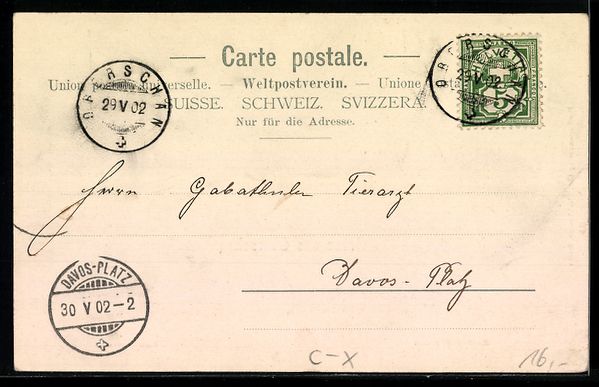 — Carte postale. —
Union postale universelle. — Weltpostverein. — Unione postale
SUISSE. SCHWEIZ. SVIZZERA.
Nur für die Adresse.
OBERSCHAN
29 V 02
OBERSCHAN
29 V 02
HELVETIA
5
Herrn Gabathuler Tierarzt
Davos-Platz
DAVOS-PLATZ
30 V 02-2
C-X
16,-